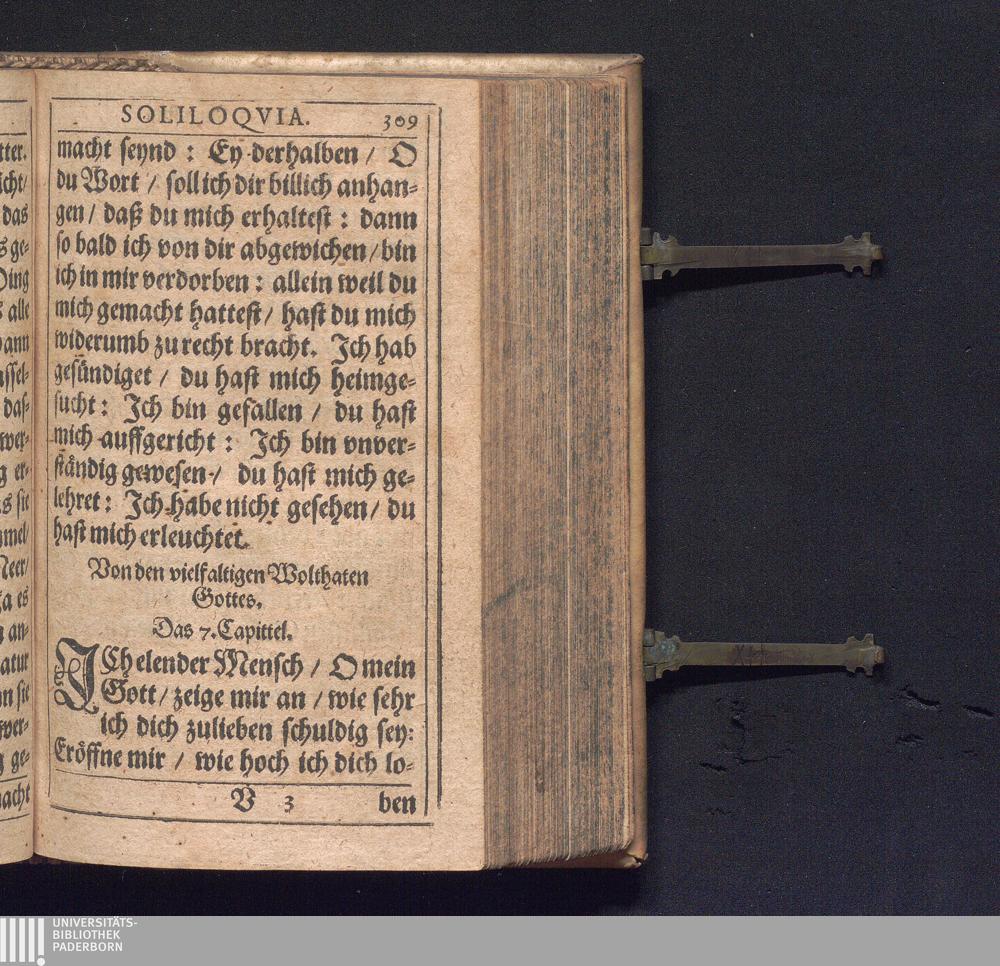 tter.
icht/
das
s ge-
Ding
s alle
dann
assel-
das-
wer-
g er-
s sie
mmel/
Neer/
ja es
n an-
atur
nn sie
wer-
g ge-
macht
SOLILOQVIA. 309
macht seynd : Ey derhalben / O
du Wort / soll ich dir billich anhan-
gen / daß du mich erhaltest : dann
so bald ich von dir abgewichen / bin
ich in mir verdorben : allein weil du
mich gemacht hattest / hast du mich
widerumb zu recht bracht. Ich hab
gesündiget / du hast mich heimge-
sucht : Ich bin gefallen / du hast
mich auffgericht : Ich bin vnver-
ständig gewesen / du hast mich ge-
lehret : Ich habe nicht gesehen / du
hast mich erleuchtet.
Von den vielfaltigen Wolthaten
Gottes.
Das 7. Capittel.
ICh elender Mensch / O mein
Gott / zeige mir an / wie sehr
ich dich zulieben schuldig sey:
Eröffne mir / wie hoch ich dich lo-
V 3 ben
UNIVERSITÄTS-
BIBLIOTHEK
PADERBORN